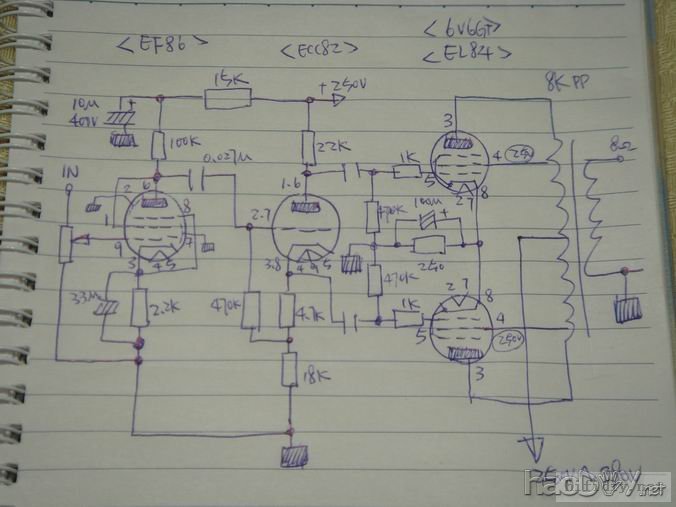 <6V6GT>
<EF86> <ECC82> <EL84>
8K PP
15K +250V
10µ
400V
3
100K 22K 8Ω
0.027µ 1K 4 250
IN 6 5 8
2 8 1.6 2 7
1 470K 100µ +
2.7
9 7
3 4 5 3.8 4 9 5 250
33µ 2.2K 470K 4.7K 470K 2 7
8
1K 4
5 250V
18K 3